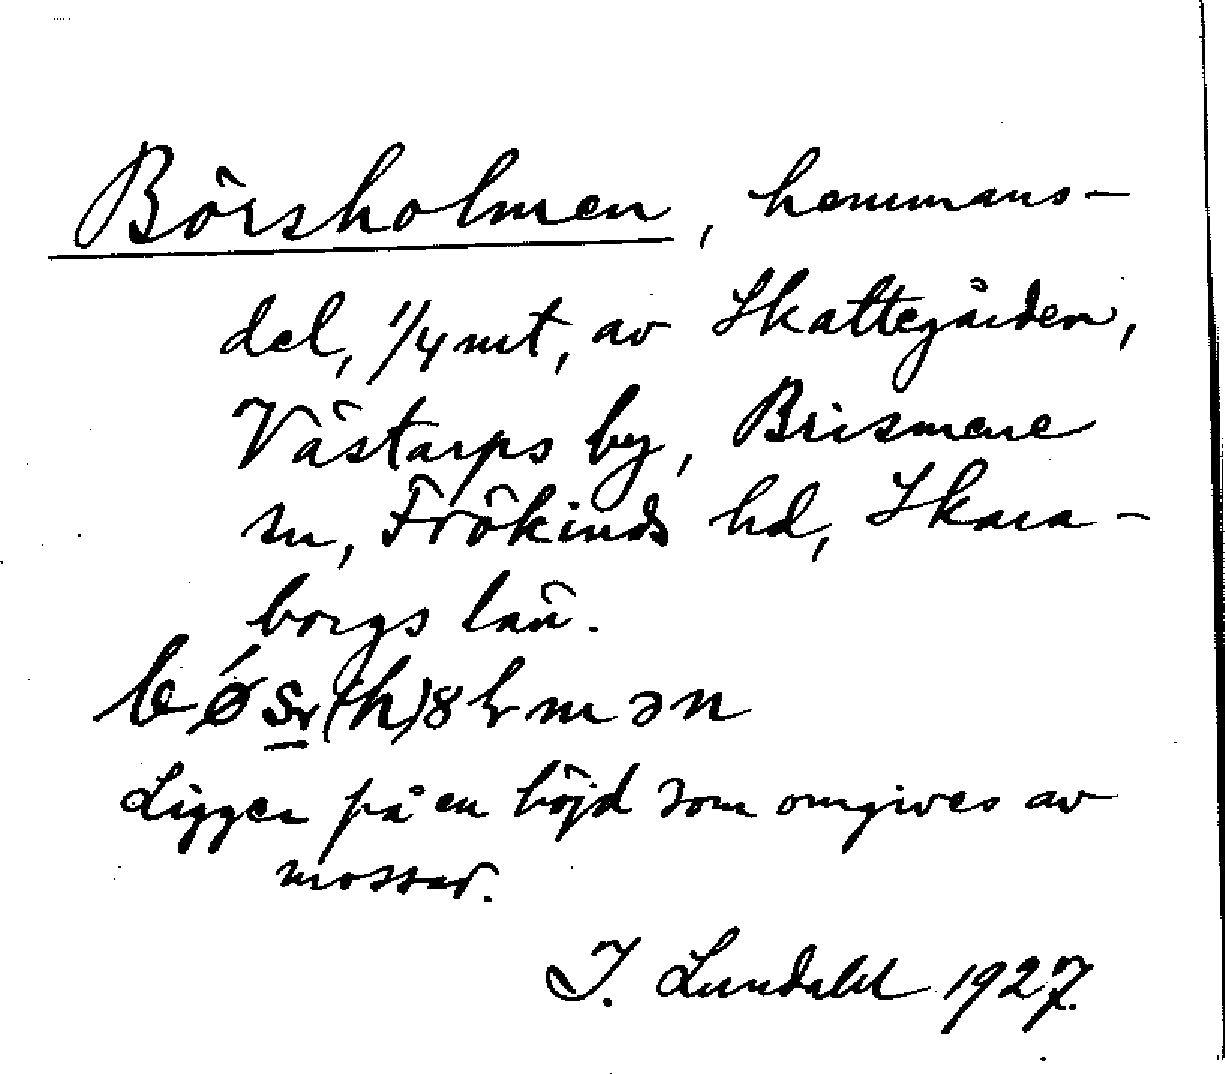 Börsholmen, hemmans-
del, 1/4 mt, av Skattegården,
Västarps by, Brismene
sn, Frökinds hd, Skara-
borgs län.
Ligger på en höjd som omgives av
mossar.
I. Lundahl 1927.